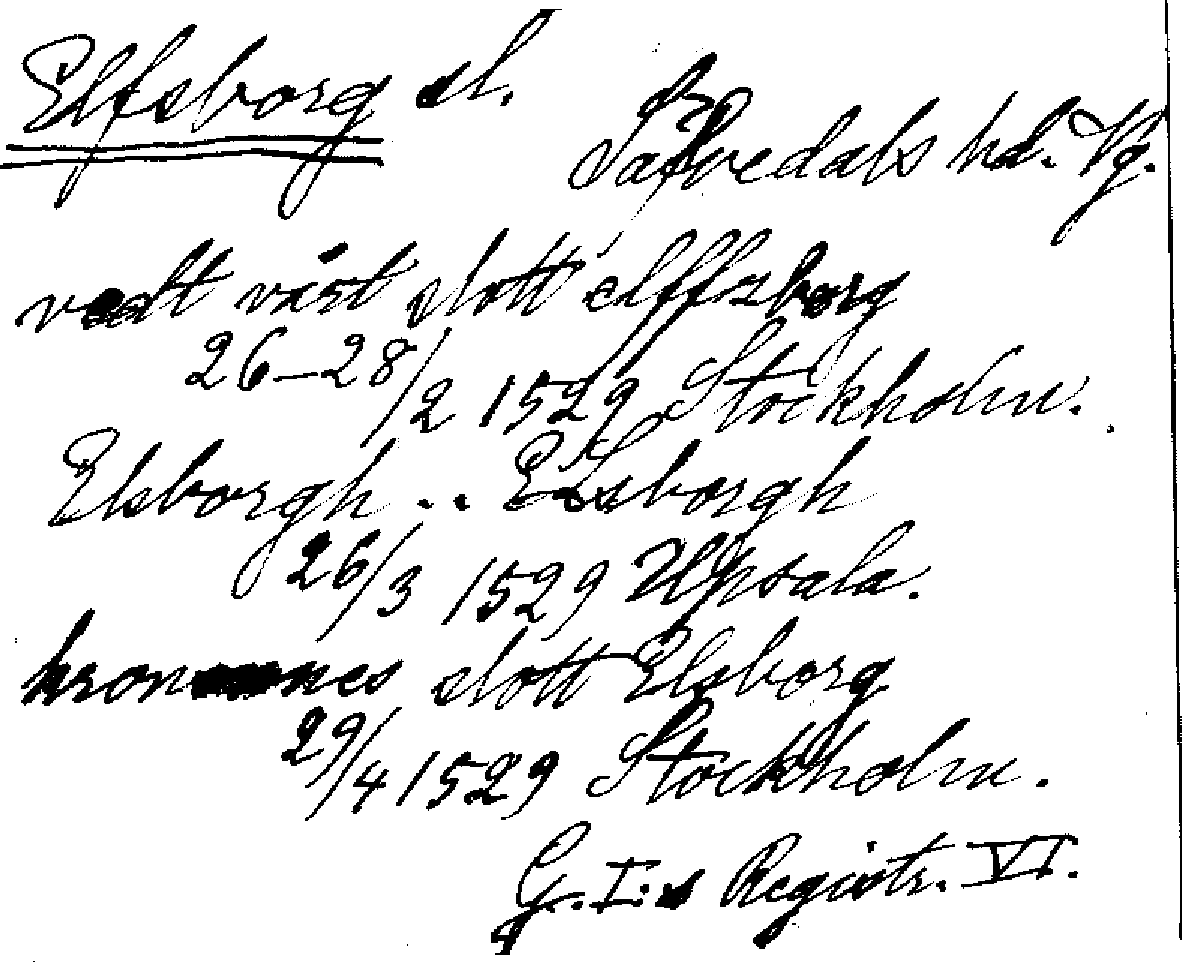 Elfsborg sl.
Säfvedals hd. Vg.
vort slott elffzborg
26-28/2 1529 Stockholm.
Elsborgh .. Elsborgh
26/3 1529 Upsala.
kronones slott Elsborg
29/4 1529 Stockholm.
G. I:s Registr. VI.